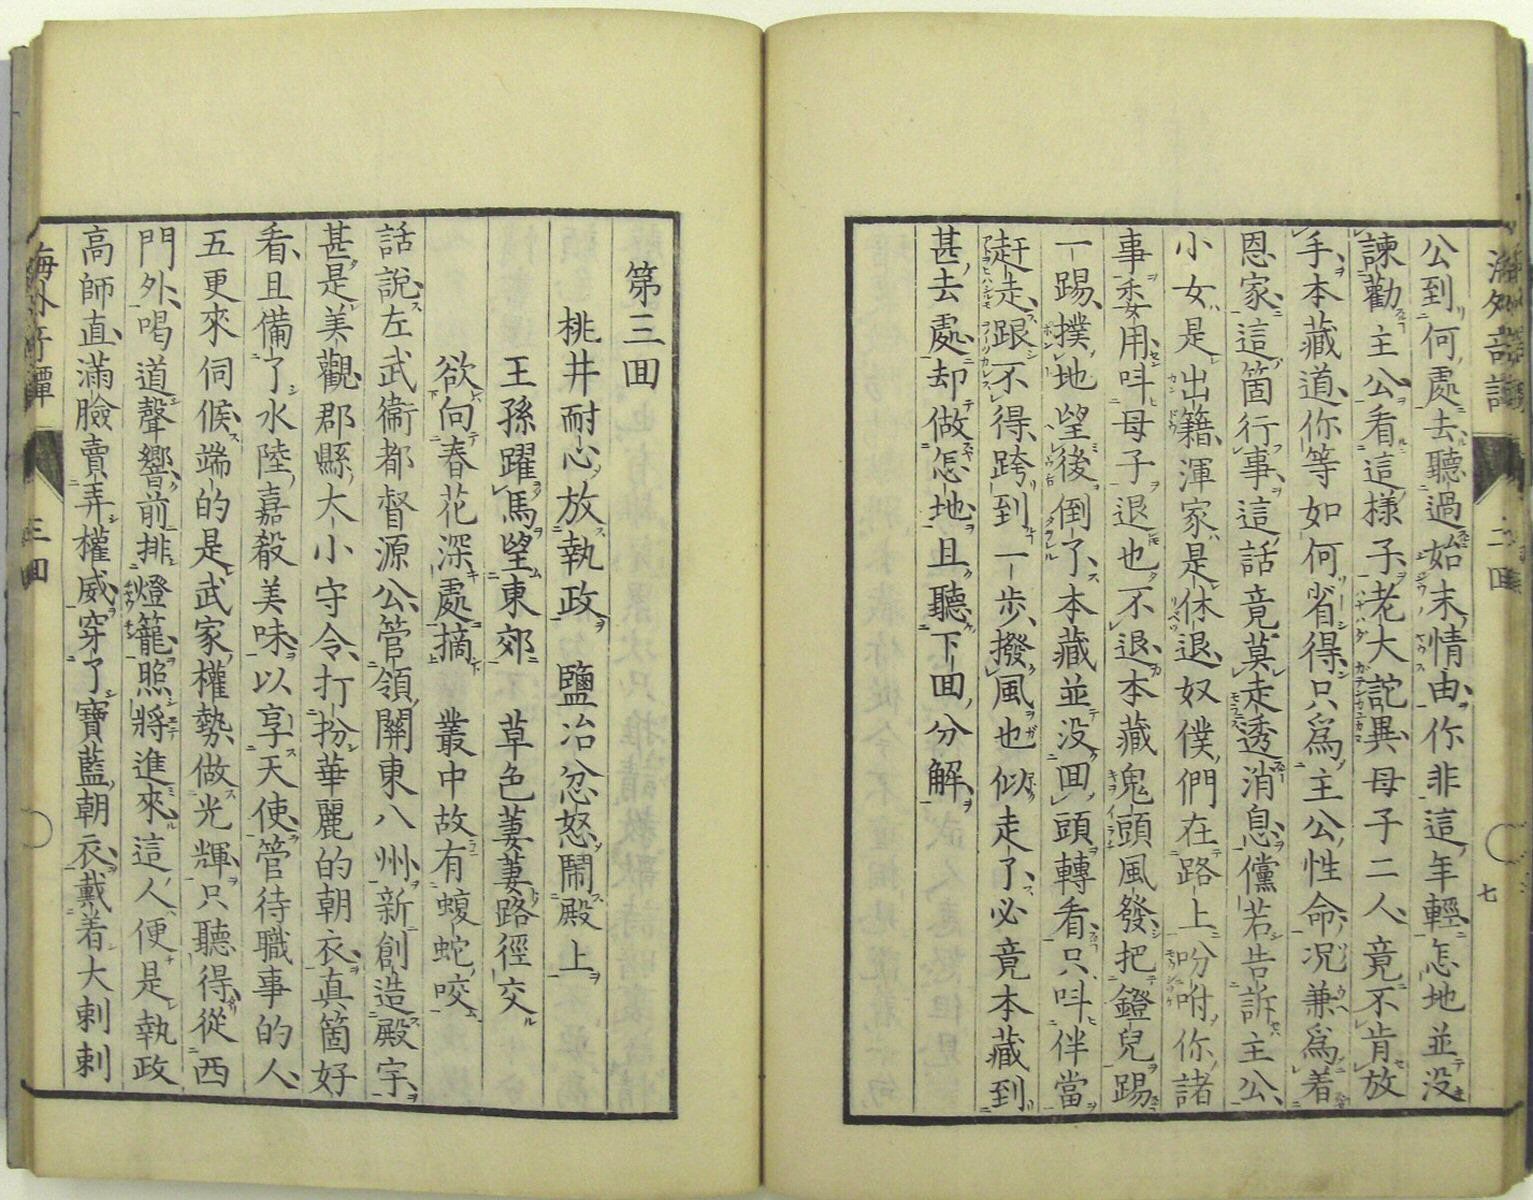 公到何處去、聽過始末、情由、你非這年輕、怎地並没
諫勸主公、看這樣子、老大詫異、母子二人、竟不肯放
手、本藏道、你等如何省得、只爲主公性命、况兼爲着
恩家、這箇行事、這話竟莫走透消息、儻若告訴主公、
小女是出籍、渾家是休退、奴僕們在路上吩咐你、諸
事用叫母子退也不退、本藏鬼頭風發、把鐙兒踢
一踢、撲地望後倒了、本藏並没回頭轉看、只叫伴當
赶走、跟不得、跨到一歩、撥風也似走了、必竟本藏到
甚去處、却做怎地、且聽下回分解、
第三回
桃井耐心放執政 鹽冶忿怒鬧殿上
王孫躍馬望東郊 草色萋萋路徑交
欲向春花深處摘 叢中故有蝮蛇咬
話説、左武衞都督源公、管領關東八州、新創造殿宇、
甚是美觀、郡縣大小守令、打扮華麗的朝衣、真箇好
看、且備了水陸嘉殽美味、以享天使、管待職事的人、
五更來伺候、端的是武家權勢、做光輝、只聽得從西
門外、喝道聲響、前排燈籠、照將進來、這人便是執政
高師直、滿臉賣弄權威、穿了寶藍朝衣、戴着大剌剌
海外奇譚
三回
二回
七